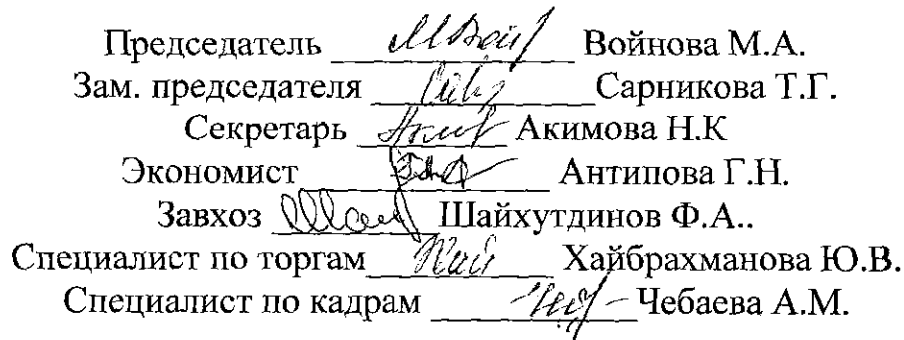 Председатель Войнова М.А.
Зам. председателя Сарникова Т.Г.
Секретарь Акимова Н.К
Экономист Антипова Г.Н.
Завхоз Шайхутдинов Ф.А..
Специалист по торгам Хайбрахманова Ю.В.
Специалист по кадрам Чебаева А.М.